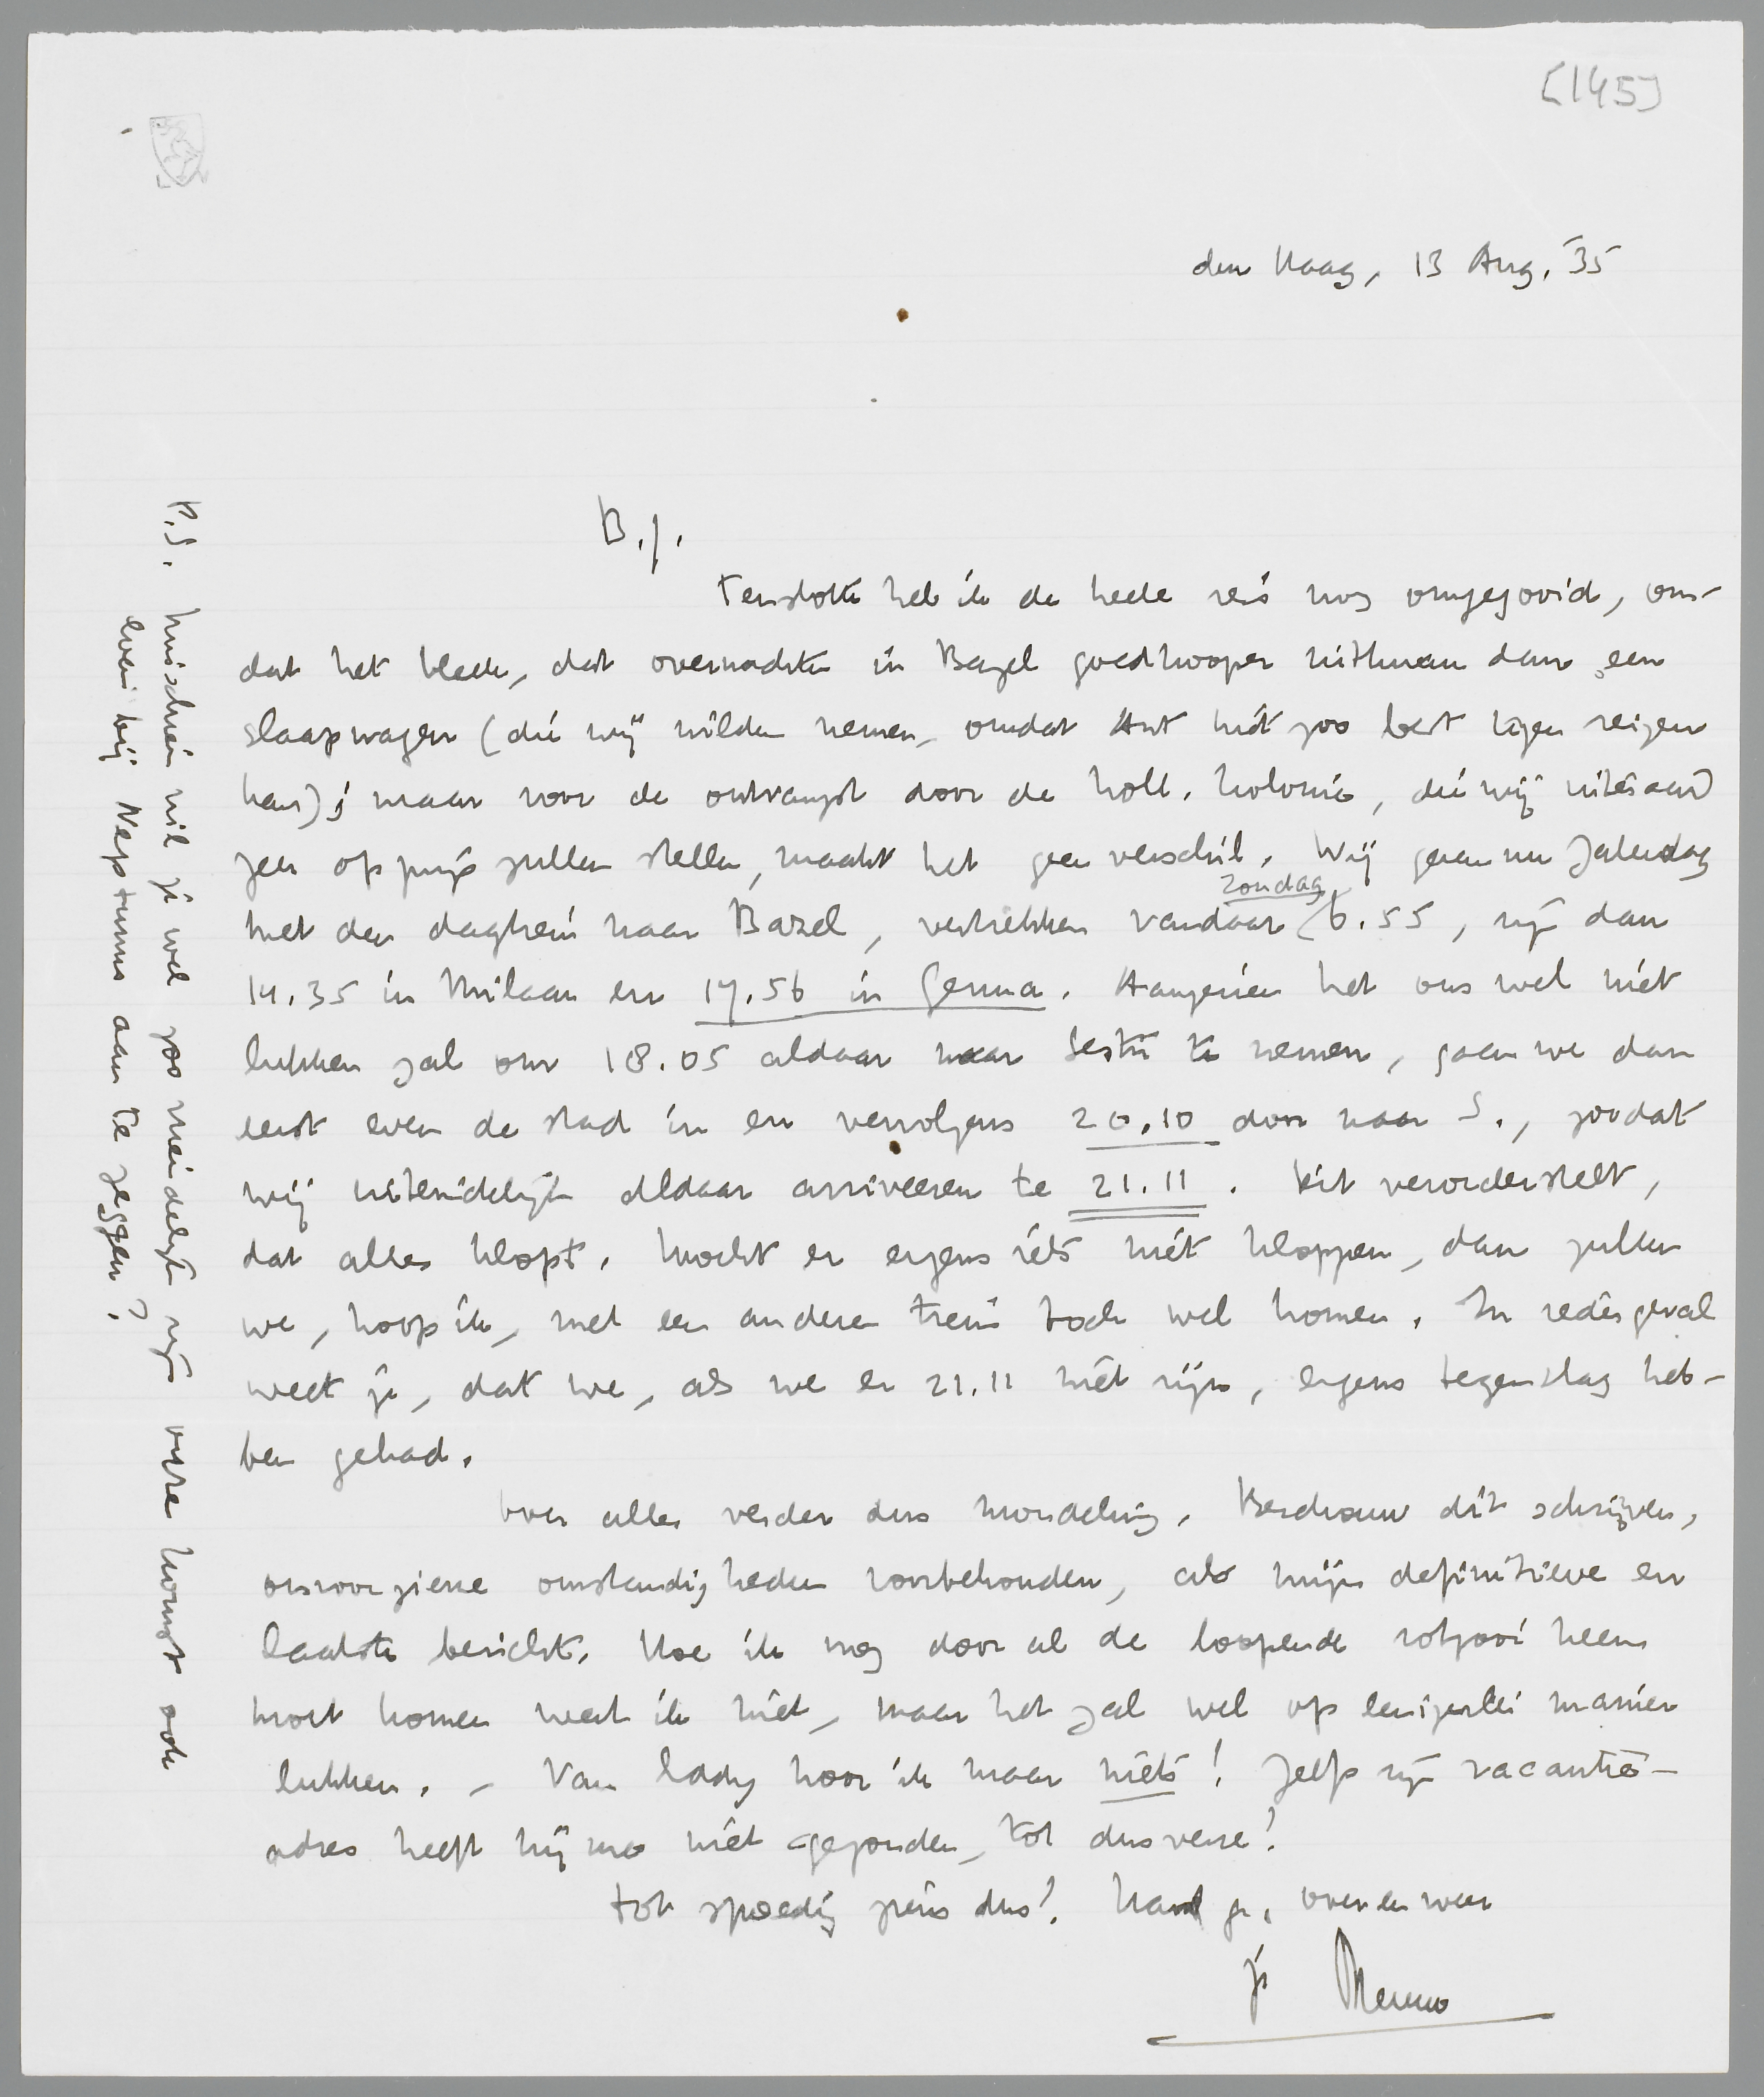 [145]
den Haag, 13 Aug. '35
B.J.
Tenslotte heb ik de heele reis nog omgegooid, om-
dat het bleek, dat overnachten in Bazel goedkooper uitkwam dan een
slaapwagen (die wij wilden nemen, omdat Ant niet zoo best tegen reizen
kan); maar voor de ontvangst door de holl. kolonie, die wij uiteraard
zeer op prijs zullen stellen, maakt het geen verschil. Wij gaan nu Zaterdag
met den dagtrein naar Bazel, vertrekken vandaar zondag 6.55, zijn dan
14.35 in Milaan en 17.56 in Genua. Aangezien het ons wel niet
lukken zal om 18.05 aldaar naar Sestri te nemen, gaan we dan
eerst even de stad in en vervolgens 20.10 door naar S., zoodat
wij uiteindelijk aldaar arriveeren te 21.11. Dit verondersteld,
dat alles klopt. Mocht er ergens iets niet kloppen, dan zullen
we, hoop ik, met een anderen trein toch wel komen. In ieder geval
weet je, dat we, als we er 21.11 niet zijn, ergens tegenslag heb-
ben gehad.
Over alles verder dus mondeling. Beschouw dit schrijven,
onvoorziene omstandigheden voorbehouden, als mijn definitieve en
laatste bericht. Hoe ik nog door al de loopende rotzooi heen
moet komen weet ik niet, maar het zal wel op eenigerlei manier
lukken. - Van Eddy hoor ik maar niets! Zelfs zijn vacantie-
adres heeft hij me niet gezonden, tot dusverre!
Tot spoedig ziens dus! Hart. gr. over en weer
je Menno
P.S. Misschien wil je wel zoo vriendelijk zijn onze komst ook
even bij Neptunus aan te zeggen?